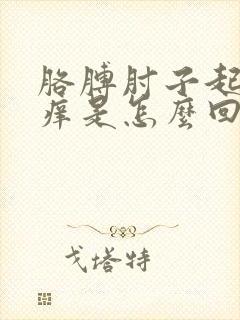 胳膊肘子起
痒是怎麼回
戈塔特